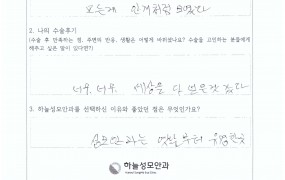 모든게 안개처럼 보였다
2. 나의 수술후기
(수술 후 만족하는 점, 주변의 반응, 생활은 어떻게 바뀌었나요? 수술을 고민하는 분들에게
해주고 싶은 말이 있다면?)
너무 너무 세상을 다 얻은것 같다
3. 하늘성모안과를 선택하신 이유와 좋았던 점은 무엇인가요?
성모안과는 옛날부터 유명한곳
하늘성모안과